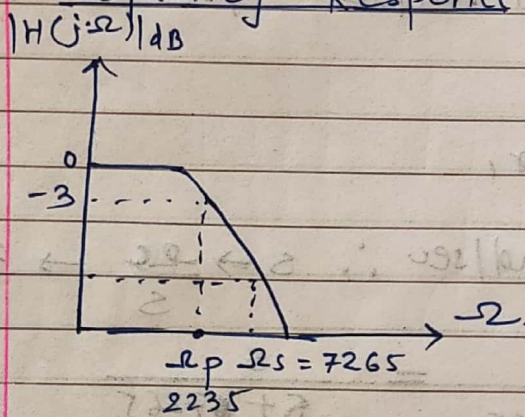 |H(j·Ω)|dB
0
-3
Ω
Ωp Ωs = 7265
2235